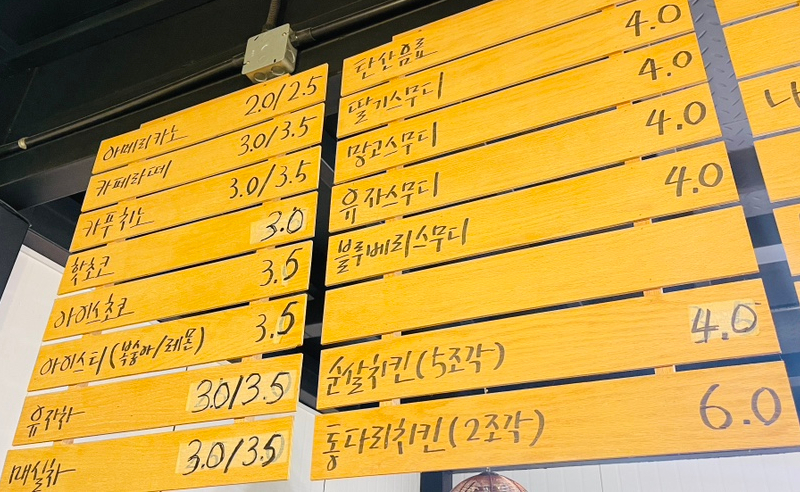 아메리카노 2.0/2.5
카페라떼 3.0/3.5
카푸취노 3.0/3.5
핫초코 3.0
아이스초코 3.5
아이스티(복숭아/레몬) 3.5
유자차 3.0/3.5
매실차 3.0/3.5
탄산음료
딸기스무디 4.0
망고스무디 4.0
유자스무디 4.0
블루베리스무디 4.0
순살치킨(5조각) 4.0
통다리치킨(2조각) 6.0